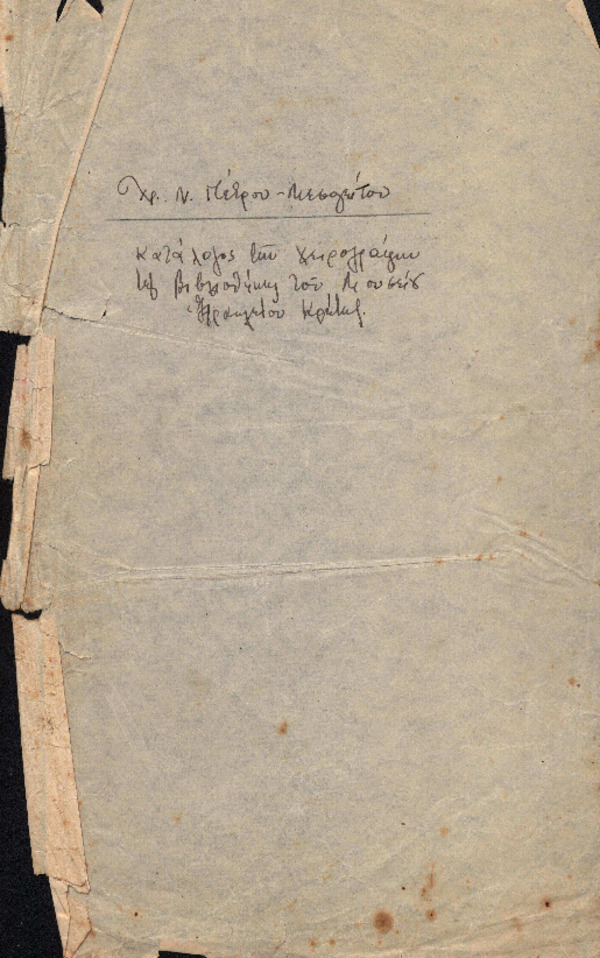 Χρ. Ν. Πέτρου-Μεσογείτου
Κατάλογος τῶν χειρογράφων
τῆς βιβλιοθήκης τοῦ Μουσείου
Ἡρακλείου Κρήτης.